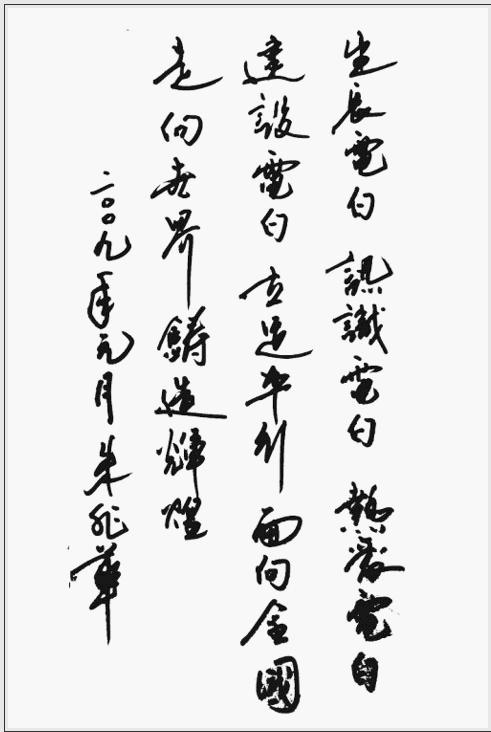 生長電白 認識電白 熱愛電白
建設電白 立足本利 面向全國
走向世界 鑄造輝煌
二〇〇九年元月 朱兆華